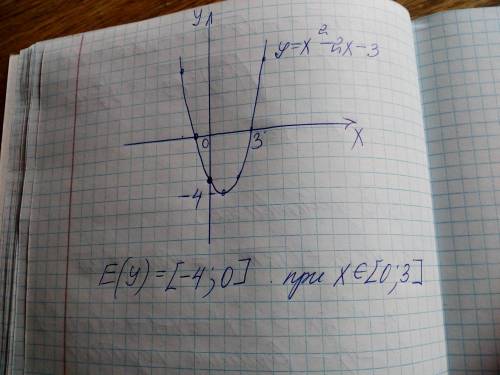 y
y=x²-2x-3
0 3 x
-4
E(y)=[-4;0] при x∈[0;3]